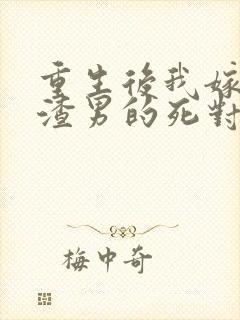 重生後我嫁
渣男的死對
梅中奇